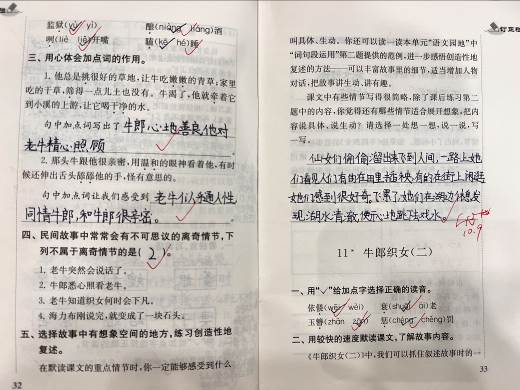 监狱(yù yì)
酿(niàng liàng)酒
咧(liě liè)开嘴
瞌(kē kè)睡
三、用心体会加点词的作用。
1. 他总是挑很好的草地,让牛吃嫩嫩的青草;家里
吃的干草,筛得一点儿土也没有。牛渴了,他就牵着它
到小溪的上游,让它喝干净的水。
句中加点词写出了 牛郎心地善良,他对
老牛精心照顾
2. 那头牛跟他很亲密,用温和的眼神看着他,有时
候还伸出舌头舔舔他的手,怪有意思的。
句中加点词让我们感受到 老牛似乎通人性
同情牛郎,和牛郎很亲密。
四、民间故事中常常会有不可思议的离奇情节,下
列不属于离奇情节的是( 2 )。
1. 老牛突然会说话了。
2. 牛郎悉心照看老牛。
3. 老牛知道织女何时会下凡。
4. 海力布刚说完,就变成了一块石头。
五、选择故事中有想象空间的地方,练习创造性地
复述。
在默读课文的重点情节时,你一定能够感受到什么
32
订正栏
叫具体、生动。你还可以读一读本单元“语文园地”中
“词句段运用”第二题提供的范例,进一步感悟创造性地
复述的方法——可以丰富故事里的细节,适当增加人物
对话,把故事讲生动、讲有趣。
课文中有些情节写得很简略,除了课后练习第二
题中的内容,你觉得还有哪些情节适合展开想象,把内
容说具体、说生动?请选择一处想一想,说一说,写
一写。
仙女们偷偷溜出来飞到人间,一路上她
们看见人们有的在田里插秧,有的在街上闲逛
她们感到很好奇,飞累了,她们在湖边休息发
现湖水清澈,便下地戏水。
10.9
11* 牛郎织女(二)
一、用“✓”给加点字选择正确的读音。
依偎(wēi wèi)
衰(shuāi āi)老
玉簪(zhān zān)
惩(chéng chěng)罚
二、用较快的速度默读课文,了解故事内容。
《牛郎织女(二)》中,我们可以抓住叙述故事时的一
33